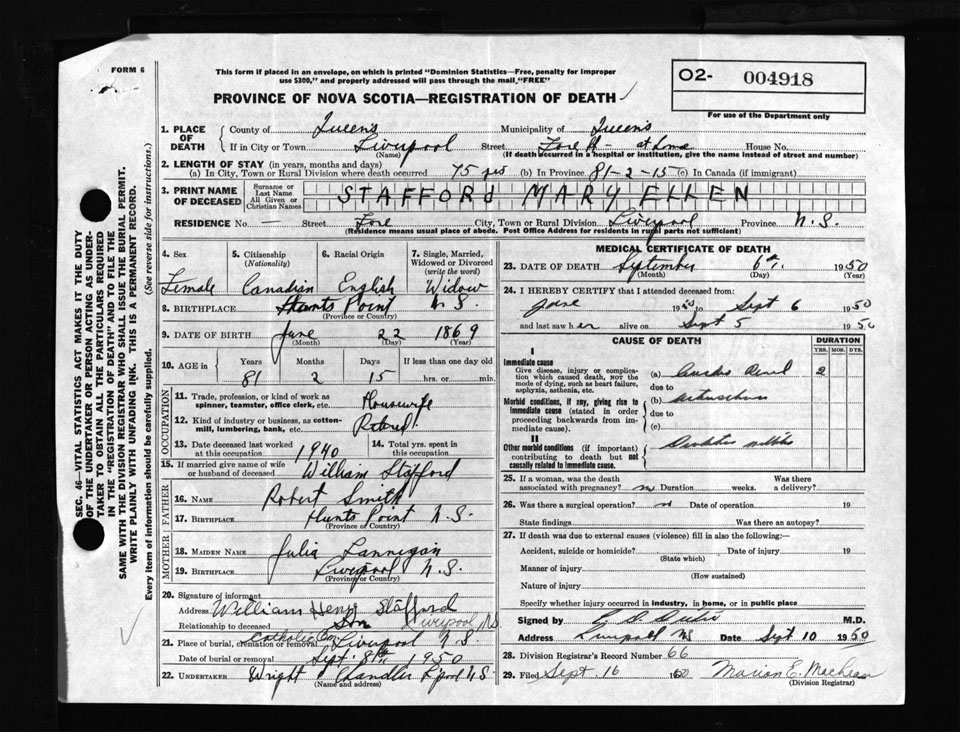 FORM 6
This form if placed in an envelope, on which is printed "Dominion Statistics—Free, penalty for improper
use $300," and properly addressed will pass through the mail, "FREE"
O2- 004918
For use of the Department only
PROVINCE OF NOVA SCOTIA—REGISTRATION OF DEATH
1. PLACE OF DEATH County of Queens Municipality of Queens
If in City or Town Liverpool Street Fore St - at home House No.
(Name) (If death occurred in a hospital or institution, give the name instead of street and number)
2. LENGTH OF STAY (in years, months and days)
(a) In City, Town or Rural Division where death occurred 75 yrs (b) In Province 81-2-15 (c) In Canada (if immigrant)
3. PRINT NAME OF DECEASED Surname or Last Name All Given or Christian Names STAFFORD MARY ELLEN
RESIDENCE No. — Street Fore City, Town or Rural Division Liverpool Province N.S.
(Residence means usual place of abode. Post Office Address for residents in rural parts not sufficient)
4. Sex 5. Citizenship (Nationality) 6. Racial Origin 7. Single, Married, Widowed or Divorced (write the word)
Female Canadian English Widow
8. BIRTHPLACE Hunts Point N.S.
(Province or Country)
9. DATE OF BIRTH June 22 1869
(Month) (Day) (Year)
10. AGE in Years Months Days If less than one day old
81 2 15 hrs. or min.
OCCUPATION
11. Trade, profession, or kind of work as spinner, teamster, office clerk, etc. Housewife
12. Kind of industry or business, as cotton-mill, lumbering, bank, etc. Retired
13. Date deceased last worked at this occupation 1940 14. Total yrs. spent in this occupation
15. If married give name of wife or husband of deceased William Stafford
FATHER
16. NAME Robert Smith
17. BIRTHPLACE Hunts Point N.S.
(Province or Country)
MOTHER
18. MAIDEN NAME Julia Lannigan
19. BIRTHPLACE Liverpool N.S.
(Province or Country)
20. Signature of informant William Henry Stafford
Address Liverpool N.S.
Relationship to deceased Son
21. Place of burial, cremation or removal Catholic Cem Liverpool N.S.
Date of burial or removal Sept. 8th 1950
22. UNDERTAKER Wright Chandler L'pool N.S.
(Name and address)
MEDICAL CERTIFICATE OF DEATH
23. DATE OF DEATH September 6th 1950
(Month) (Day) (Year)
24. I HEREBY CERTIFY that I attended deceased from:
19 to Sept 6 1950
and last saw her alive on Sept 5 1950
CAUSE OF DEATH DURATION
YRS. MOS. DYS.
I
Immediate cause
Give disease, injury or complication which caused death, NOT the mode of dying, such as heart failure, asphyxia, asthenia, etc.
(a) 2
due to
Morbid conditions, if any, giving rise to immediate cause (stated in order proceeding backwards from immediate cause).
(b)
due to
(c)
II
Other morbid conditions (if important) contributing to death but not causally related to immediate cause.
25. If a woman, was the death associated with pregnancy? no Duration weeks. Was there a delivery?
26. Was there a surgical operation? no Date of operation 19
State findings Was there an autopsy?
27. If death was due to external causes (violence) fill in also the following:—
Accident, suicide or homicide? Date of injury 19
(State which)
Manner of injury
(How sustained)
Nature of injury
Specify whether injury occurred in industry, in home, or in public place
Signed by M.D.
Address Liverpool NS Date Sept 10 1950
28. Division Registrar's Record Number 66
29. Filed Sept. 16 1950 Marion E. MacLean
(Division Registrar)
SEC. 46—VITAL STATISTICS ACT MAKES IT THE DUTY
OF THE UNDERTAKER OR PERSON ACTING AS UNDER-
TAKER TO OBTAIN ALL THE PARTICULARS REQUIRED
IN THE "REGISTRATION OF DEATH" AND TO FILE THE
SAME WITH THE DIVISION REGISTRAR WHO SHALL ISSUE THE BURIAL PERMIT.
WRITE PLAINLY WITH UNFADING INK. THIS IS A PERMANENT RECORD.
Every item of information should be carefully supplied. (See reverse side for instructions.)